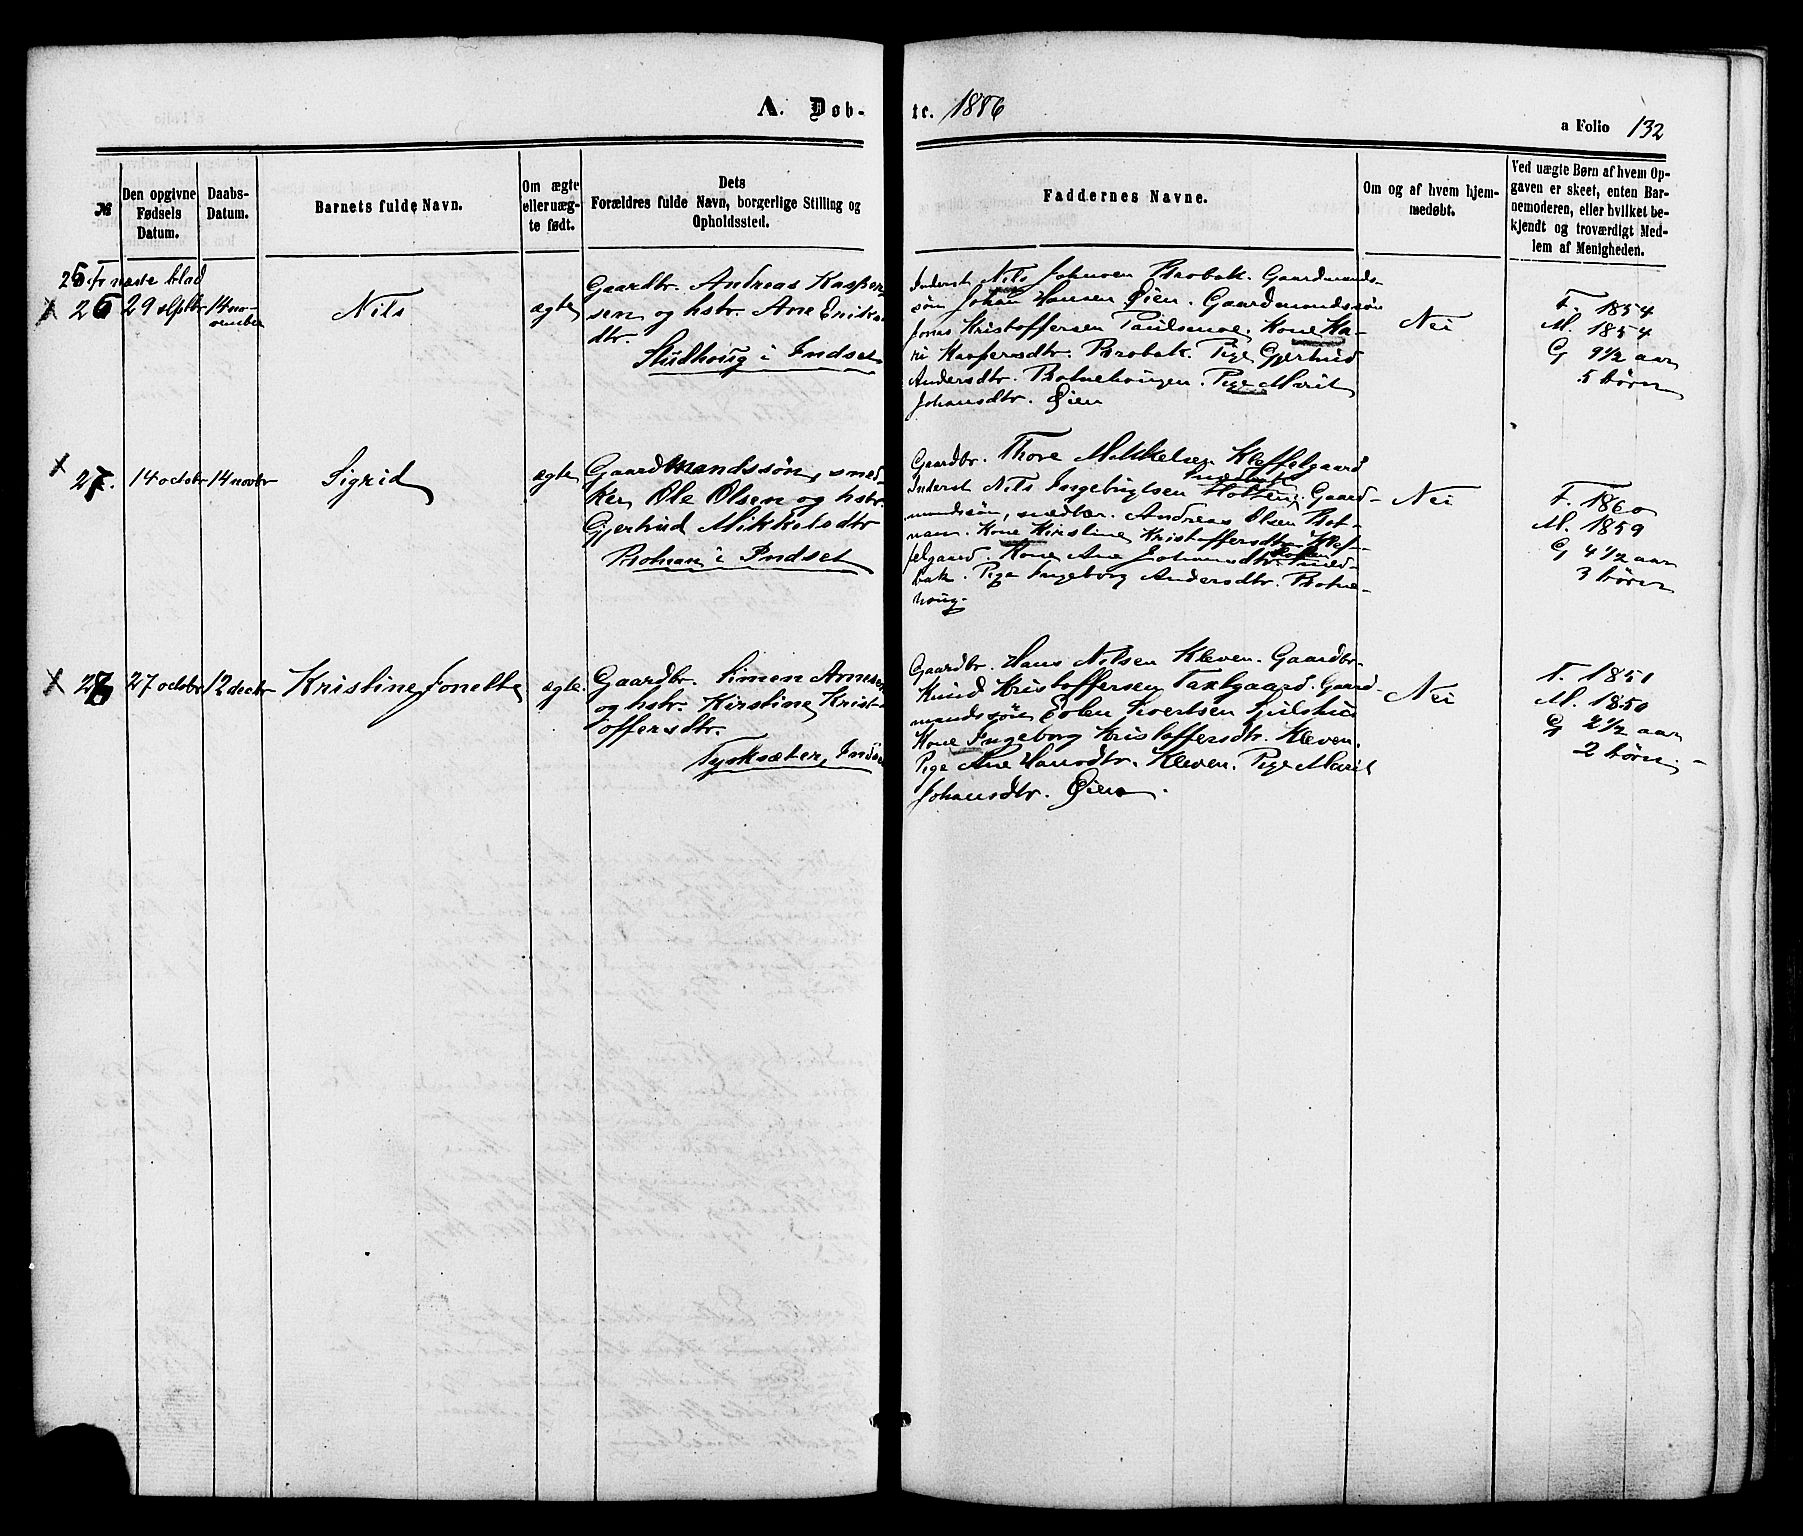 A. Døb-
te. 1886
a Folio 132
№
Den opgivne
Fødsels
Datum.
Daabs-
Datum.
Barnets fulde Navn.
Om ægte
eller uæg-
te født.
Dets
Forældres fulde Navn, borgerlige Stilling og
Opholdssted.
Faddernes Navne.
Om og af hvem hjem-
medøbt.
Ved uægte Børn af hvem Op-
gaven er skeet, enten Bar-
nemoderen, eller hvilket be-
kjendt og troværdigt Med-
lem af Menigheden.
næste blad
26
29 septbr
14 no-
vember
Nils
ægte
Gaardbr. Andreas Kasper-
sen og hstr. Ane Eriks-
dtr.
Studhoug i Indset
Inderst Nils Johnsen Brobak. Gaardmands-
søn Johan Hansen Øien. Gaardmandssøn
Jons Kristoffersen Paulsmoe. Kone Ka-
ri Kaspersdtr. Brobak. Pige Gjertrud
Andersdtr. Botnehougen. Pige Marit
Johansdtr. Øien
Nei
F. 1854
M. 1854
G 9 1/2 aar
5 børn
27.
14 octobr
14 novbr
Sigrid
ægte
Gaardmandssøn, sned-
ker Ole Olsen og hstr.
Gjertrud Mikkelsdtr
Botnan i Indset
Gaardbr. Thore Mikkelsen Kleffelgaard
Inderst Nils Ingebrigtsen Gaard-
mandssøn, snedker. Andreas Olsen Bot-
nam. Kone Kirstine Kristoffersdtr. Klef-
felgaard. Kone Ane Johannsdtr. Smed-
bak. Pige Ingeborg Andersdtr. Botne-
houg.
Nei
F. 1860
M. 1859
G 4 1/2 aar
3 børn
28
27 octobr
12 decbr
Kristine Jonette
ægte.
Gaardbr. Simen Arnesen
og hstr. Kirstine Krist-
offersdtr.
Tysksæter, Indset
Gaardbr. Hans Nilsen Kleven. Gaardbr.
Knud Kristoffersen Taxlgaard. Gaard-
mandssøn Esten Sivertsen
Kone Ingeborg Kristoffersdtr. Kleven.
Pige Ane Hansdtr. Kleven. Pige Marit
Johansdtr. Øien.
Nei
F. 1850
M. 1850
G 2 1/2 aar
2 børn.